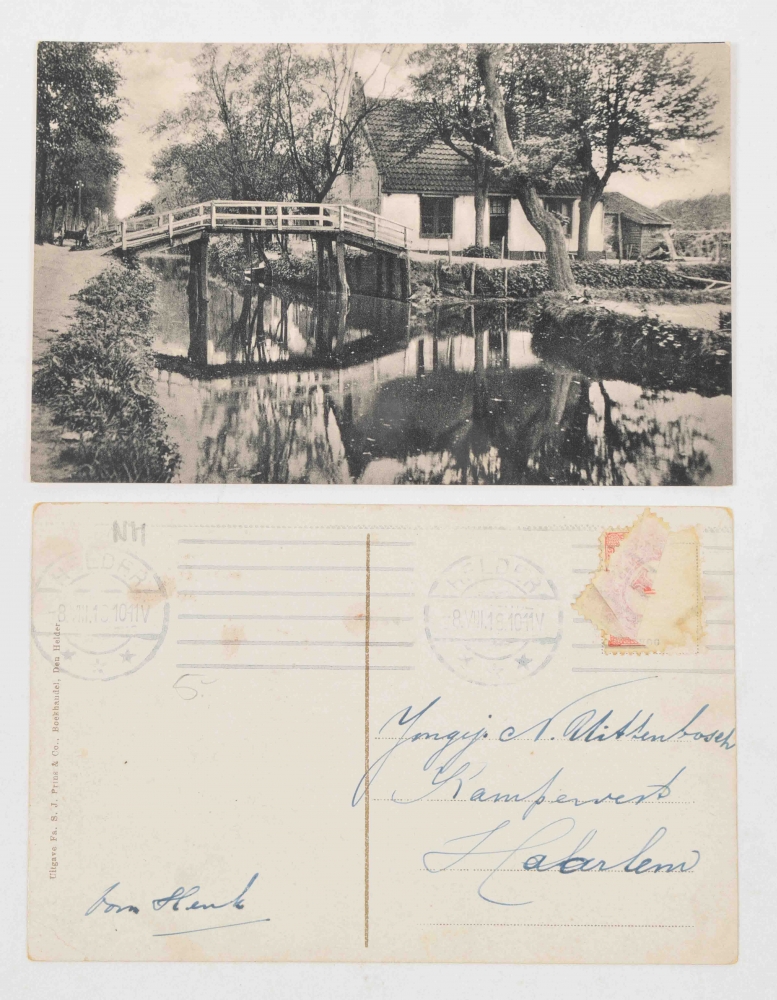 NH
HELDER
8.VIII.16.10-11V
HELDER
8.VIII.16.10-11V
5.-
Uitgave Fa. S. J. Prins & Co., Boekhandel, Den Helder.
N. Uittenbosch
Kampervest
Haarlem
Henk